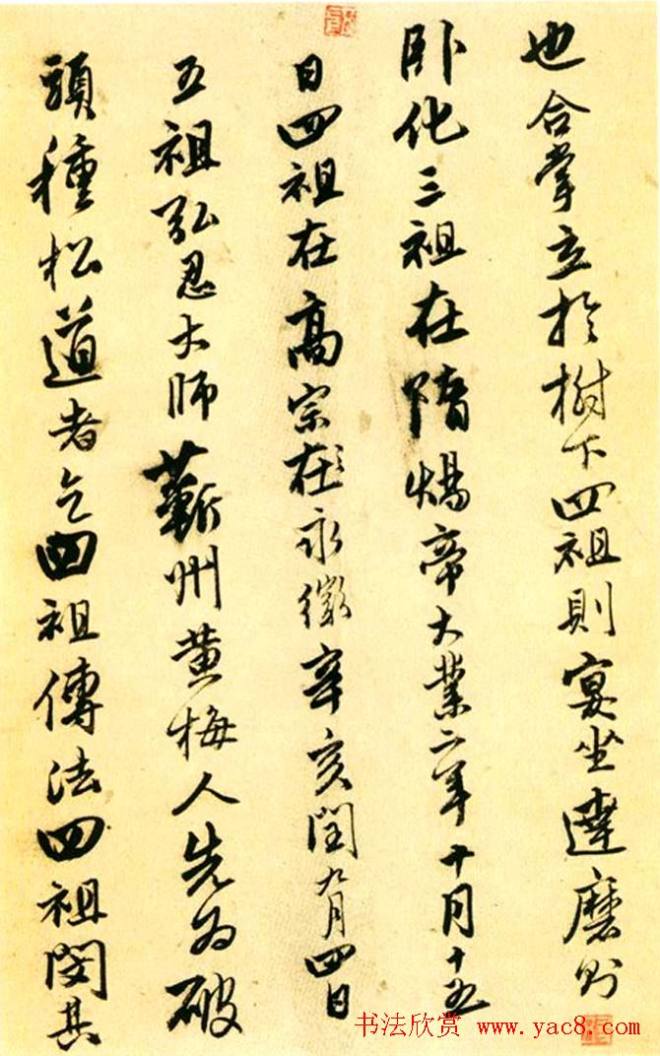 也合掌立於樹下四祖則宴坐達磨則
臥化三祖在隋煬帝大業二年十月十五
日四祖在高宗在永徽辛亥閏九月四日
五祖弘忍大師蘄州黃梅人先為破
頭種松道者乞四祖傳法四祖閔其
书法欣赏 www.yac8.com